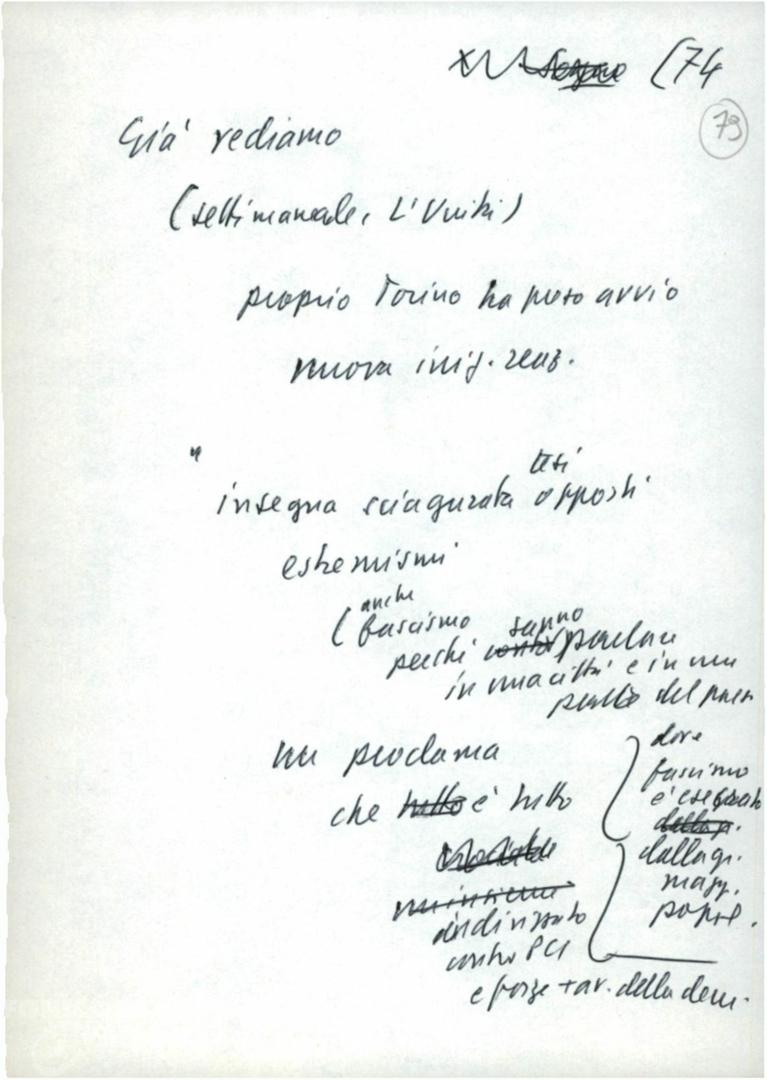 (74
79
Già vediamo
(settimanale, L'Unità)
proprio Torino ha preso avvio
nuova iniz. reaz.
"
insegna sciagurata tesi opposti
estremismi
(anche fascismo
perché contro sanno parlare
in una città e in una
parte del paese
un proclama
che tutto è tutto
indirizzato
contro PCI
e forze + av. della dem.
dove
fascismo
è esecrato
dalla p.
dalla gr.
magg.
popol.